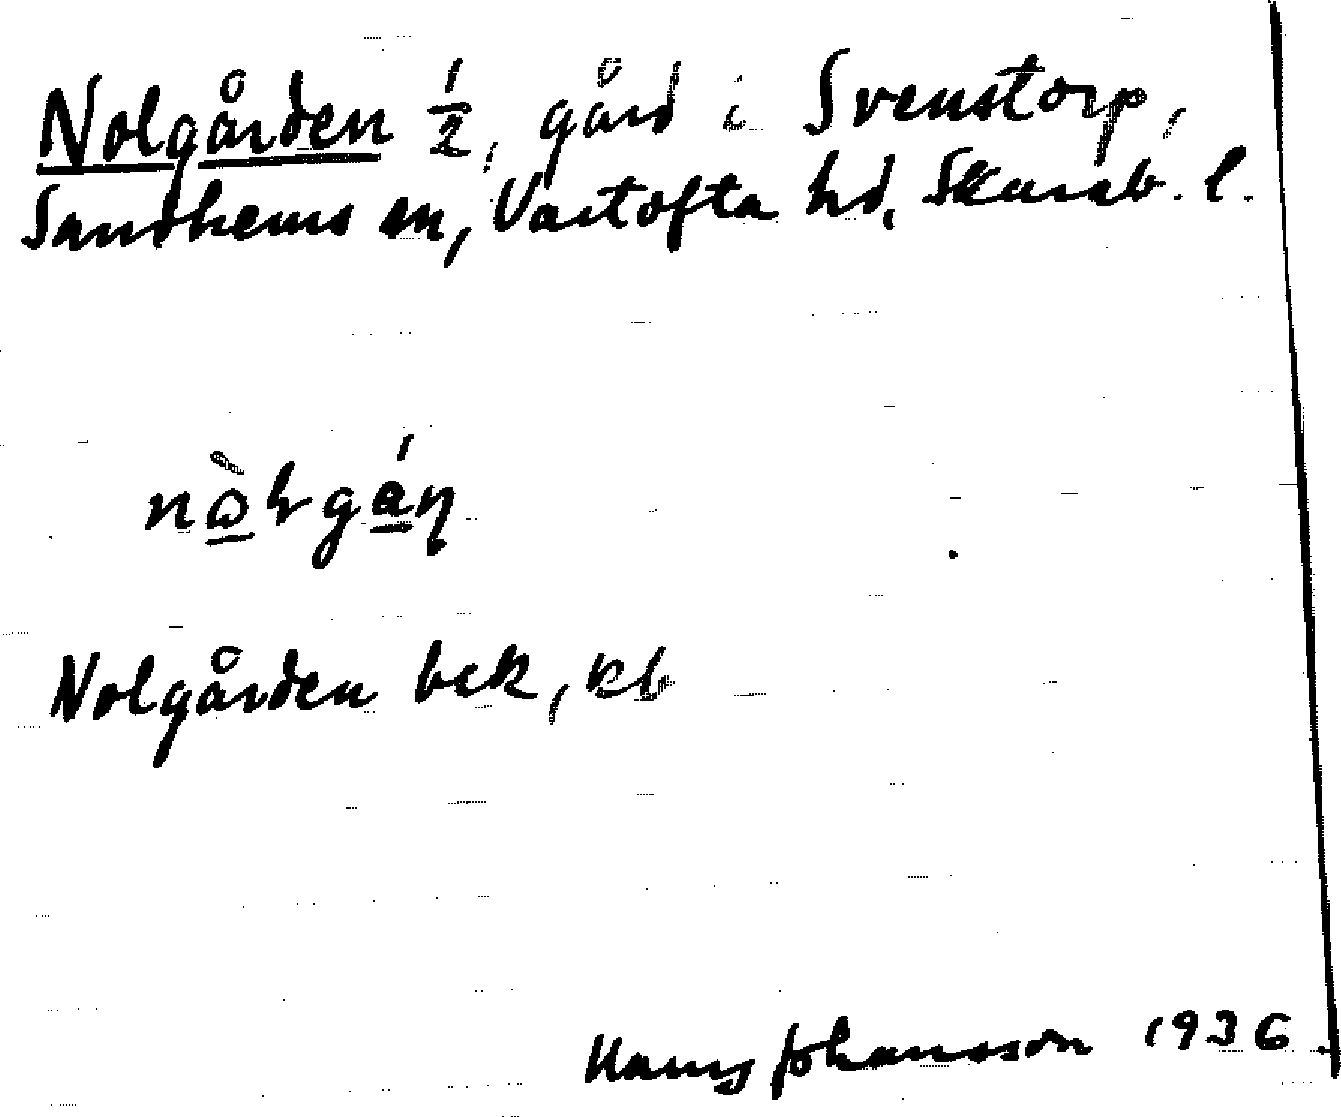 Nolgården ½, gård i Svenstorp,
Sandhems sn, Vartofta hd, Skarab. l.
Nolgården bek, kb
Hans Johansson 1936